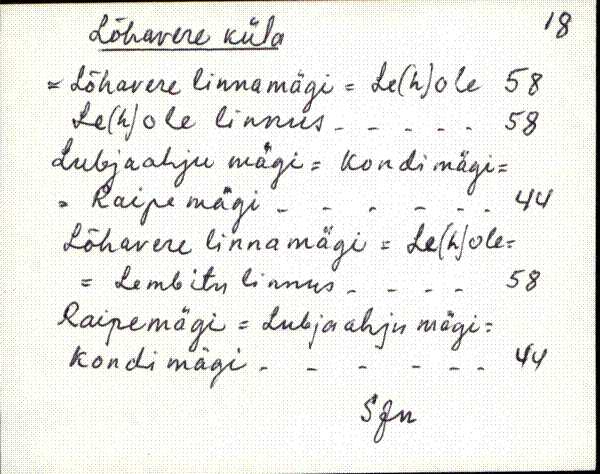 18
Lõhavere küla
= Lõhavere linnamägi = Le(h)ole 58
Le(h)ole linnus - - - - - 58
Lubjaahju mägi = Kondi mägi =
= Raipe mägi - - - - - - 44
Lõhavere linnamägi = Le(h)ole =
= Lembitu linnus - - - - 58
Raipemägi = Lubjaahju mägi =
Kondi mägi - - - - - - 44